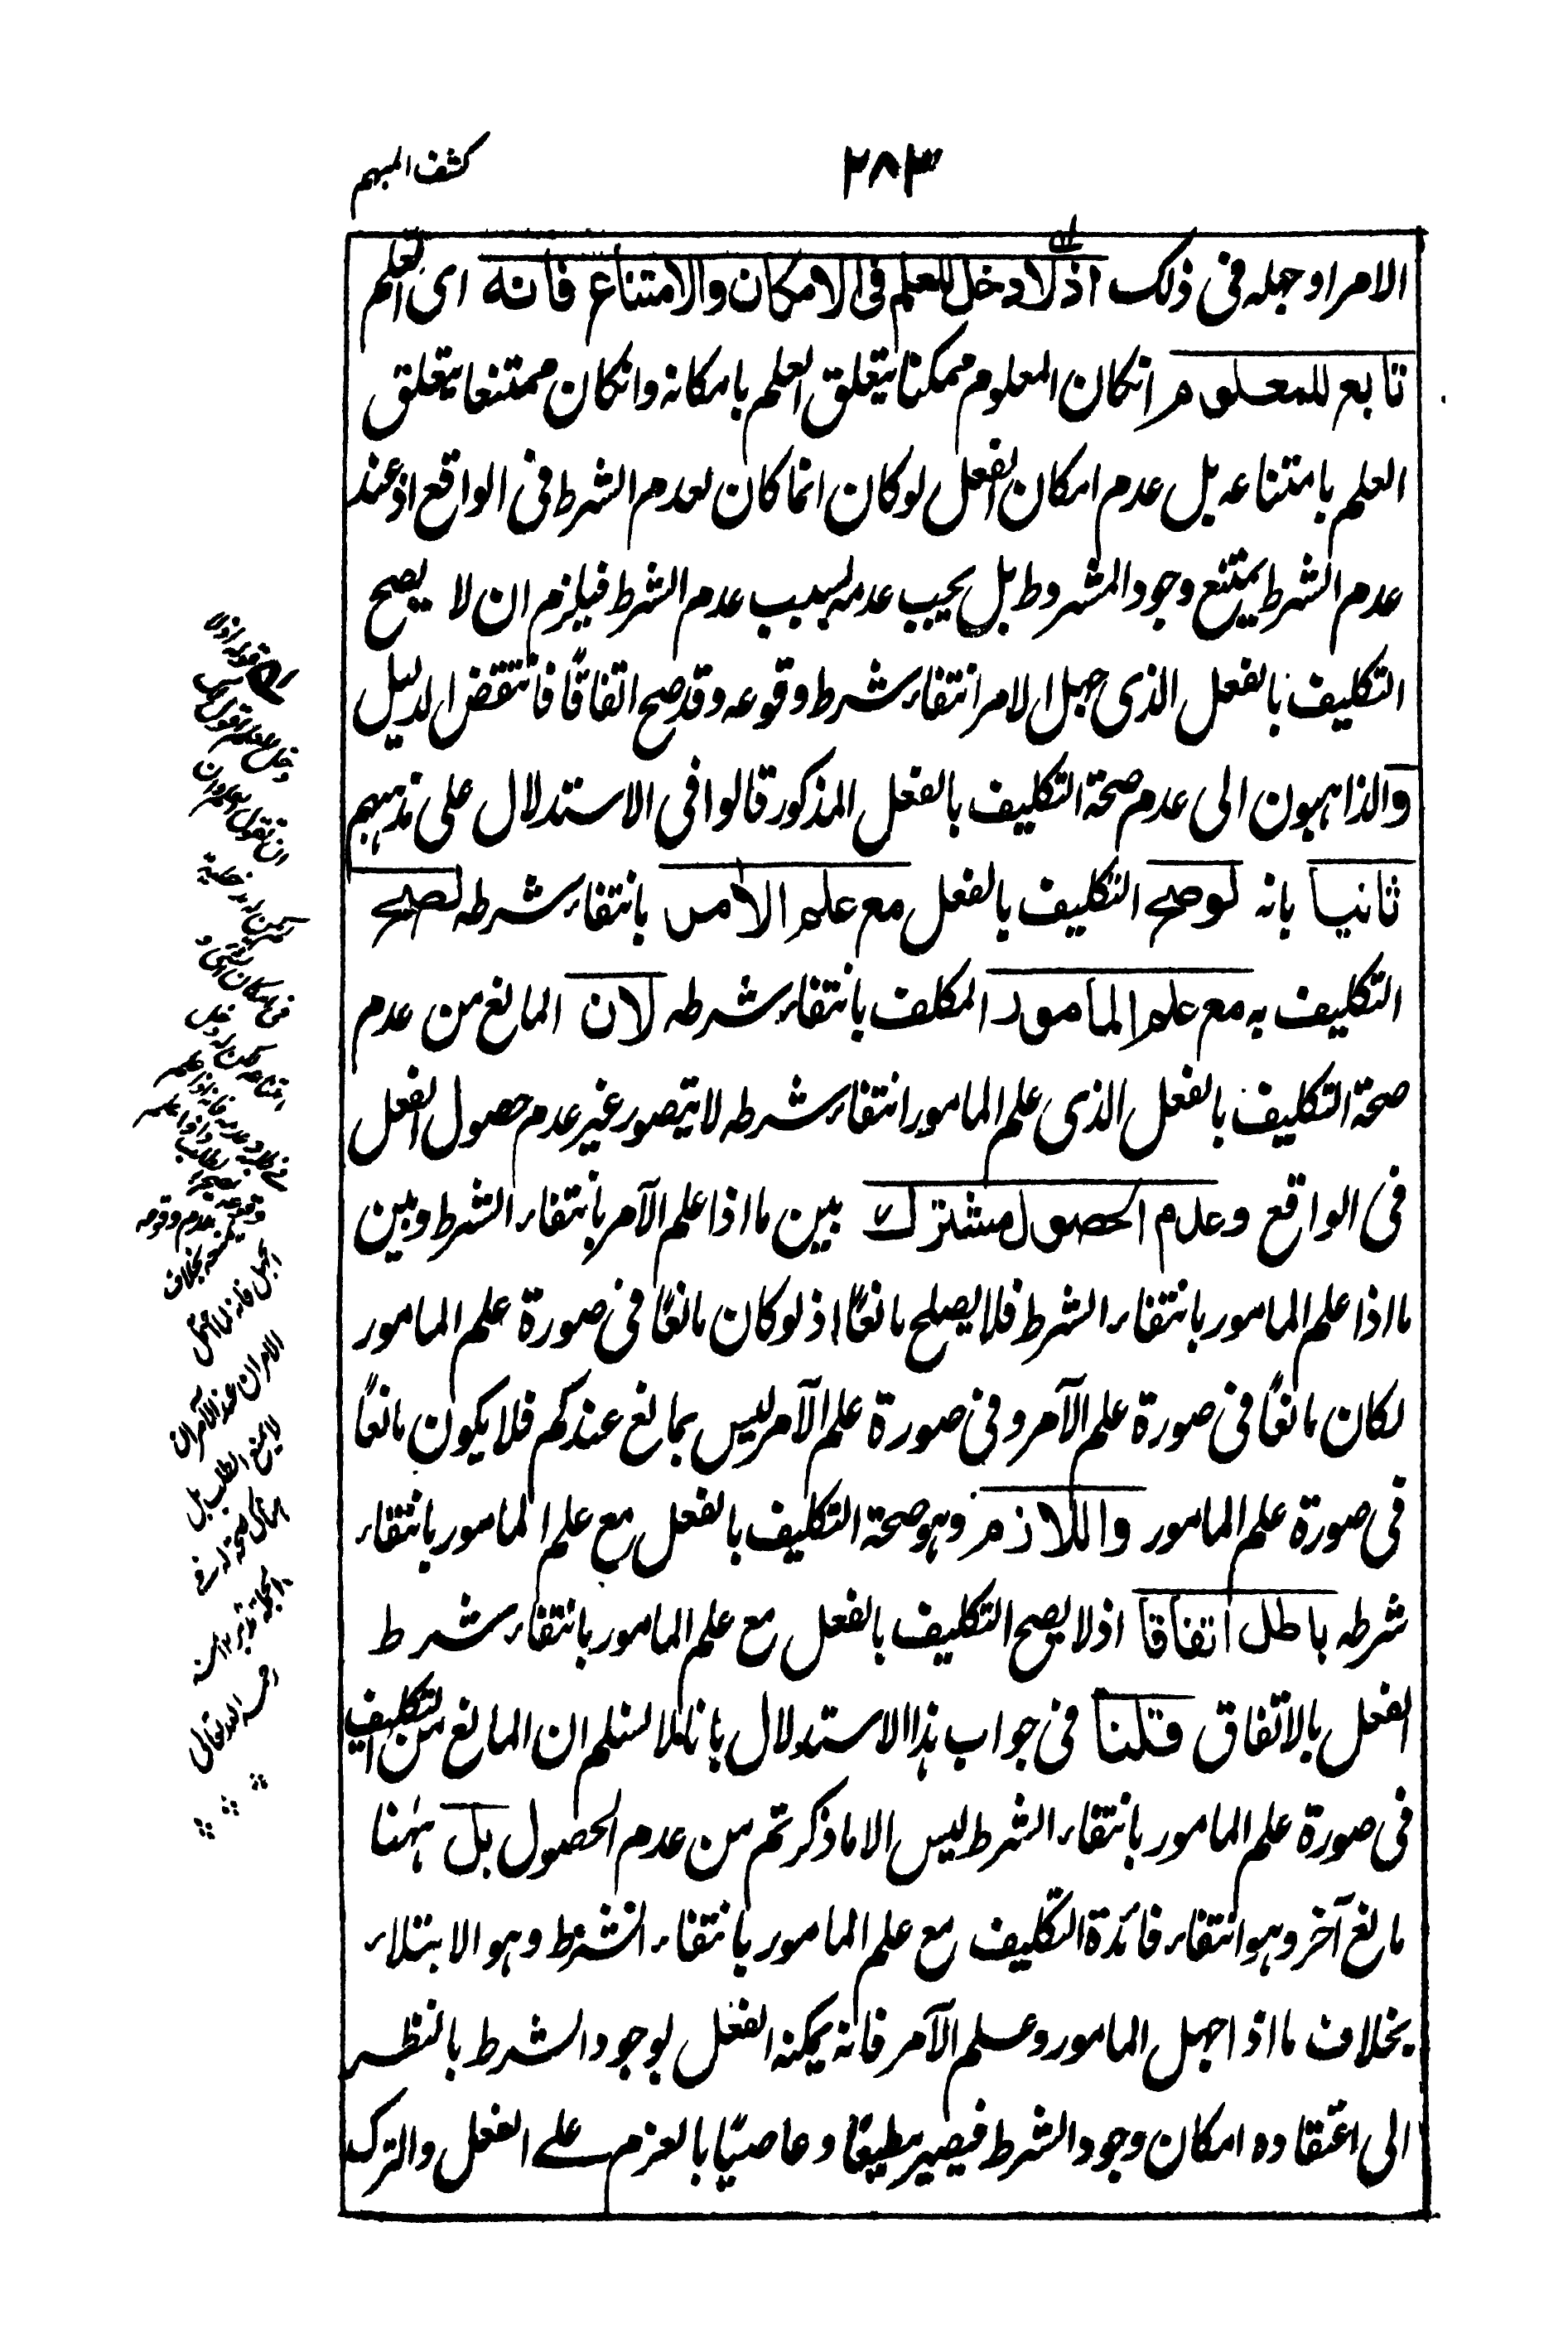 كشف المبهم
٢٨٣
الامر او جهله فى ذلك اذ لا دخل للعلم فى الامكان والامتناع فانه اى العلم
تابع للمعلوم انكان المعلوم ممكنا يتعلق العلم بامكانه وانكان ممتنعا يتعلق
العلم بامتناعه بل عدم امكان الفعل لو كان انما كان لعدم الشرط فى الواقع اذ عند
عدم الشرط يمتنع وجود المشروط بل يجب عدمه بسبب عدم الشرط فيلزم ان لا يصح
التكليف بالفعل الذى جهل الامر انتفاء شرط وقوعه وقد صح اتفاقًا فانتقض الدليل
والذاهبون الى عدم صحة التكليف بالفعل المذكور قالوا فى الاستدلال على مذهبهم
ثانيا بانه لو صح التكليف بالفعل مع علم الامر بانتفاء شرطه لصح
التكليف به مع علم المامور المكلف بانتفاء شرطه لان المانع من عدم
صحة التكليف بالفعل الذى علم المامور انتفاء شرطه لا يتصور غير عدم حصول الفعل
فى الواقع وعدم الحصول مشترك بين ما اذا علم الآمر بانتفاء الشرط وبين
ما اذا علم المامور بانتفاء الشرط فلا يصلح مانعًا اذ لو كان مانعًا فى صورة علم المامور
لكان مانعًا فى صورة علم الآمر وفى صورة علم الآمر ليس بمانع عندكم فلا يكون مانعًا
فى صورة علم المامور واللازم وهو صحة التكليف بالفعل مع علم المامور بانتفاء
شرطه باطل اتفاقا اذ لا يصح التكليف بالفعل مع علم المامور بانتفاء شرط
الفعل بالاتفاق قلنا فى جواب هذا الاستدلال بانا لا نسلم ان المانع من التكليف
فى صورة علم المامور بانتفاء الشرط ليس الا ما ذكرتم من عدم الحصول بل ههنا
مانع آخر وهو انتفاء فائدة التكليف مع علم المامور بانتفاء الشرط وهو الابتلاء
بخلاف ما اذا جهل المامور وعلم الآمر فانه يمكنه الفعل لوجود الشرط بالنظر
الى اعتقاده امكان وجود الشرط فيصير مطيعًا وعاصيًا بالعزم على الفعل والترك
قوله اذ لا
الامران عند الآمران
لا يمنع الطلب بل
رحمه الله تعالى